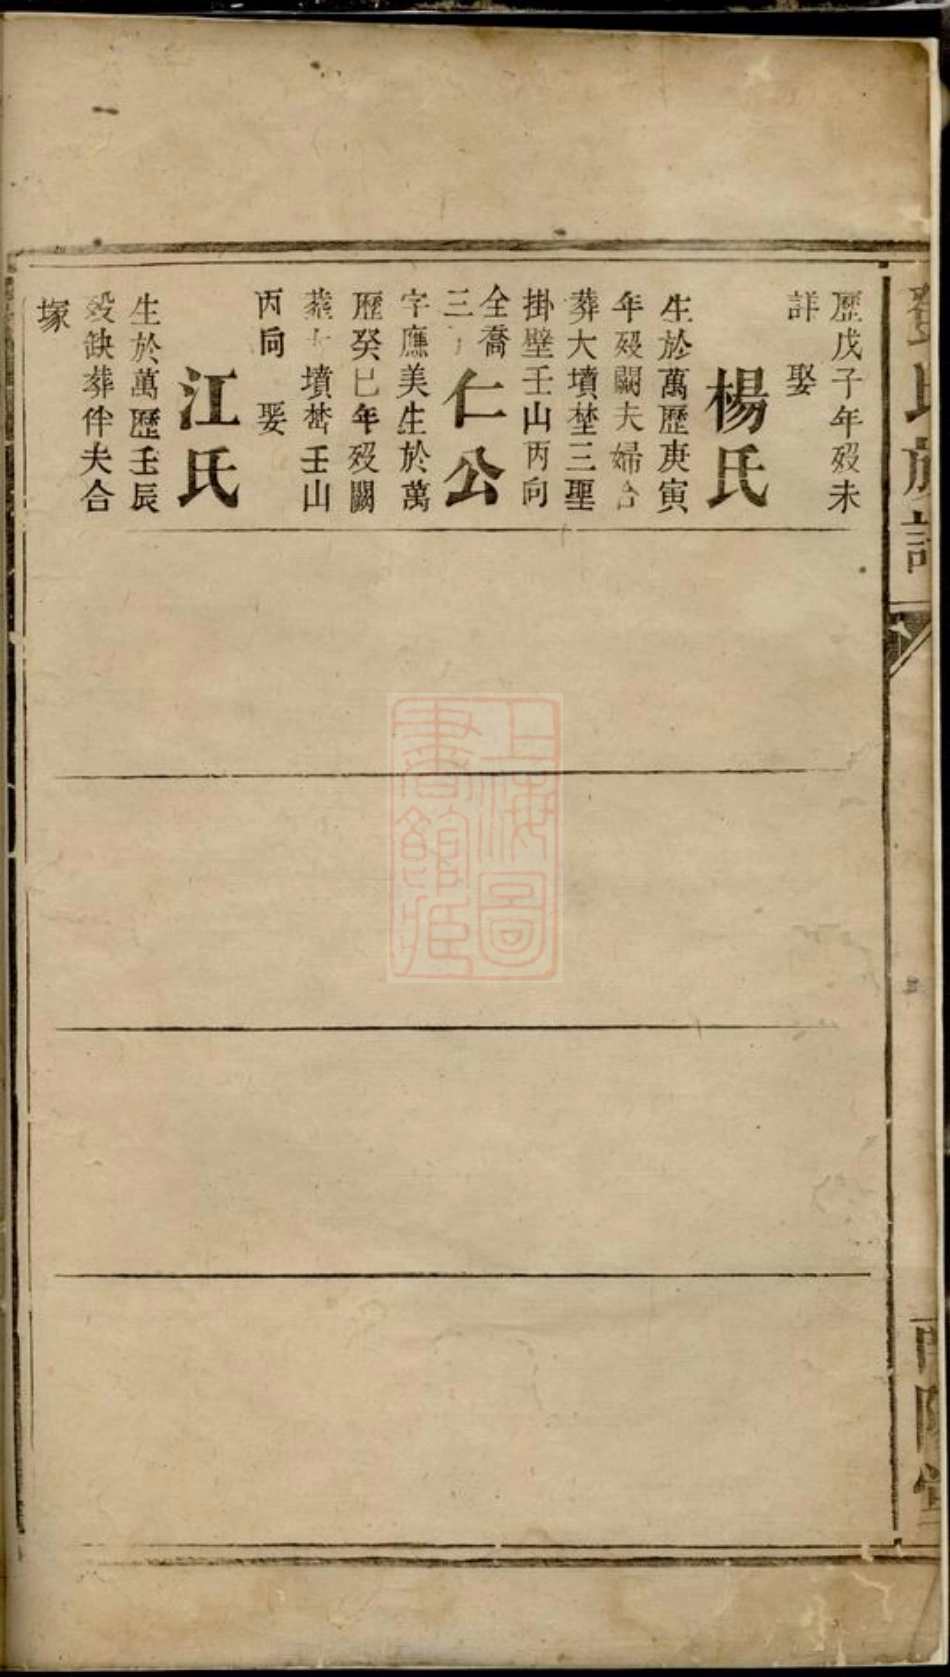 氏族譜
南陽堂
歷戊子年歿未
詳　娶
楊氏
生於萬歷庚寅
年歿闕夫婦合
葬大墳埜三聖
掛壁壬山丙向
全喬
三子
仁公
字應美生於萬
歷癸巳年歿闕
葬大墳埜壬山
丙向　娶
江氏
生於萬歷壬辰
歿缺葬伴夫合
塚
上海圖
書館藏